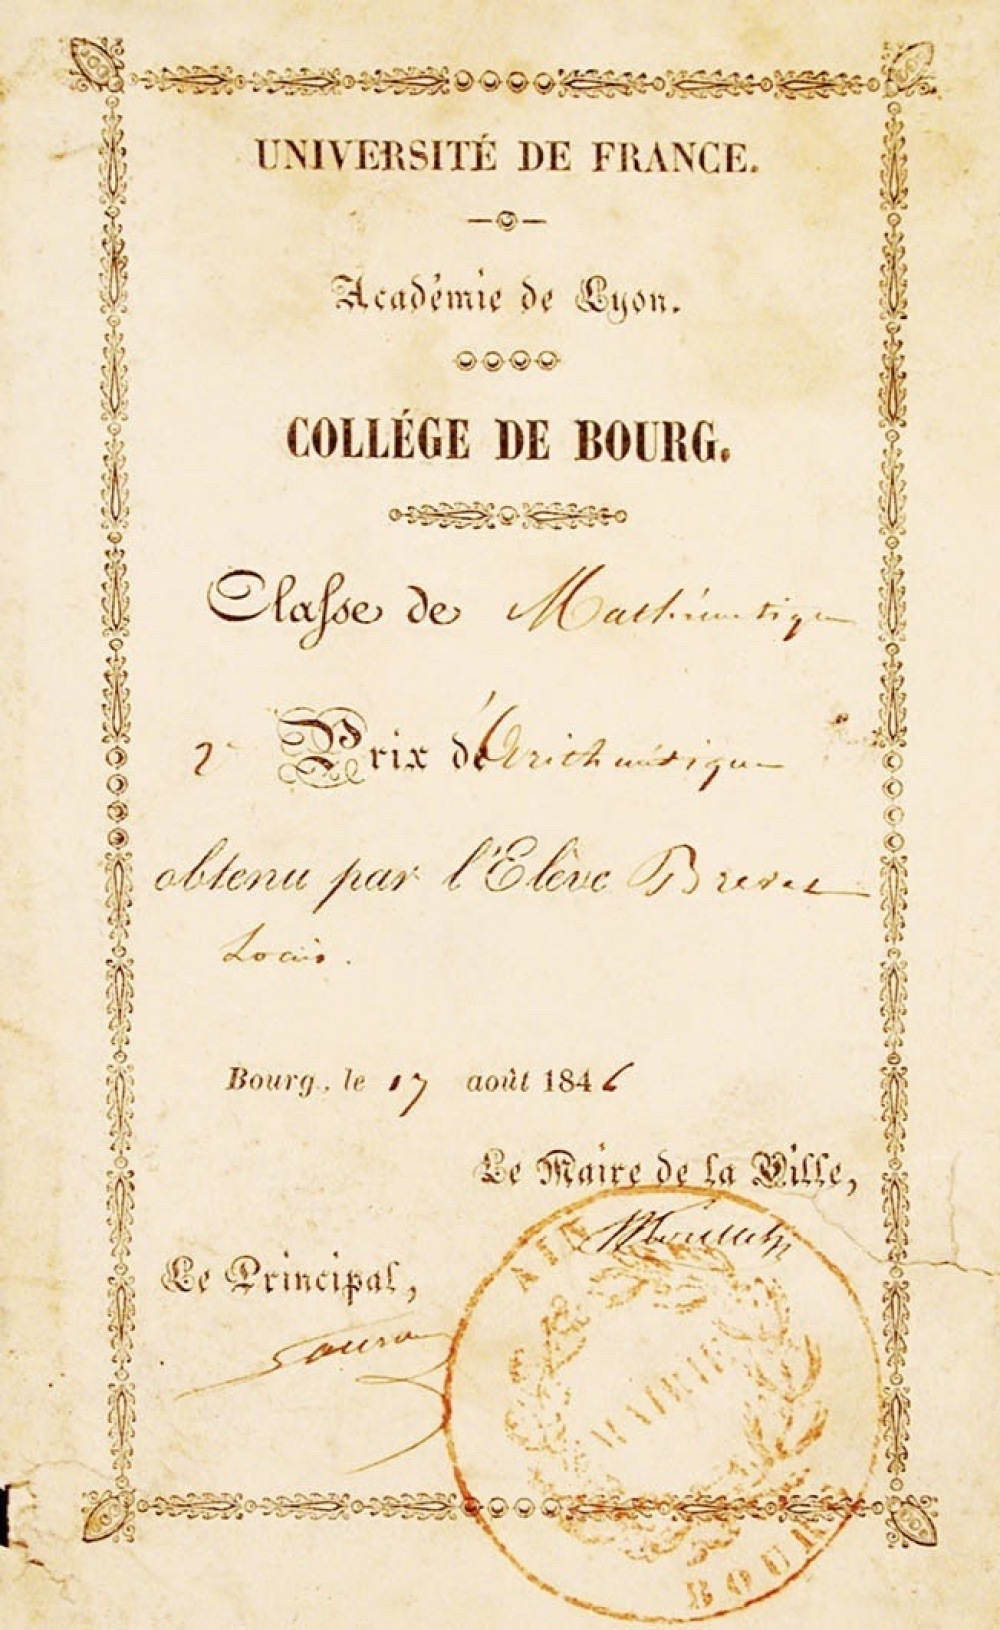 UNIVERSITÉ DE FRANCE.
Académie de Lyon.
COLLÉGE DE BOURG.
Classe de Mathématique
2e Prix d'Arithmétique
obtenu par l'Elève
Louis.
Bourg, le 17 août 1846
Le Maire de la Ville,
Le Principal,
AIN
MAIRIE